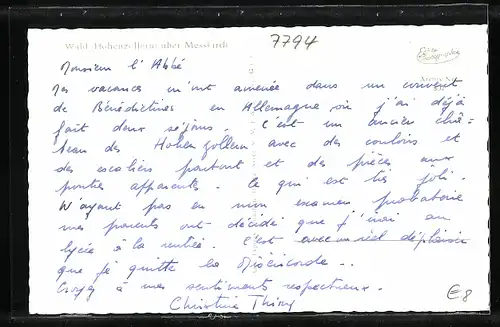 7794
Wald Hohenzollern über Messkirch
Echte Photographie
Monsieur l'Abbé
Mes vacances m'ont amenée dans un couvent
de Bénédictines en Allemagne où j'ai déjà
fait deux séjours. C'est un ancien châ=
teau des Hohenzollern avec des couloirs et
des escaliers partout et des pièces aux
poutres apparentes. Ce qui est très joli.
N'ayant pas eu mon examen probatoire
mes parents ont décidé que j'irai au
lycée à la rentrée. C'est avec un réel déplaisir
que je quitte la Miséricorde..
Croyez à mes sentiments respectueux.
Christine Thiry
€8